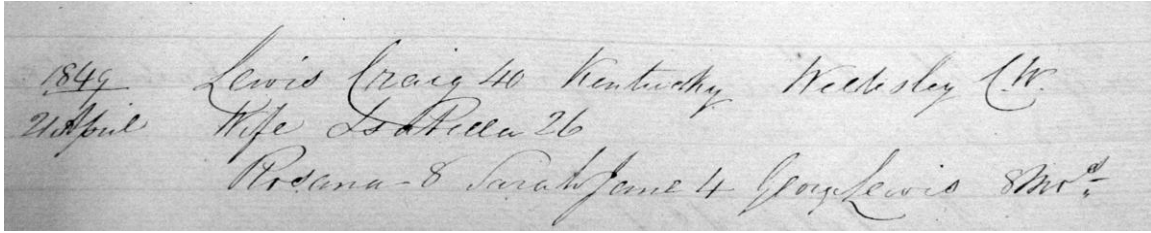 1849 Lewis Craig 40 Kentucky Wellesley C.W.
21 April Wife Isabella 26
Rosana - 8 Sarah Jane 4 George Lewis 8 Mos